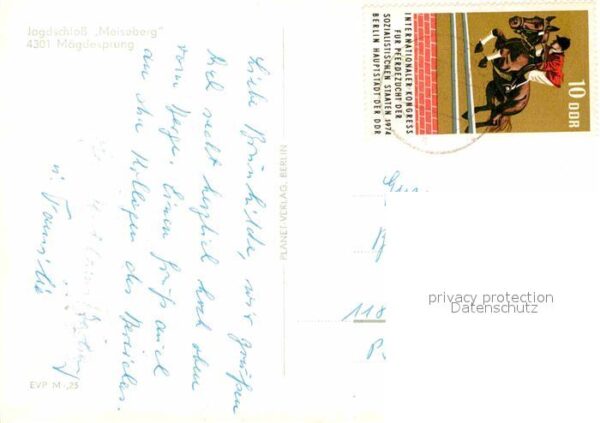 Jagdschloß „Meiseberg"
4301 Mägdesprung
Liebe Brunhilde, wir grüßen
Dich recht herzlich hoch oben
vom Berge. Einen Gruß auch
an die Kollegen des Bereiches.
u. Familie
EVP M -,25
PLANET-VERLAG, BERLIN
INTERNATIONALER KONGRESS
FÜR PFERDEZUCHT DER
SOZIALISTISCHEN STAATEN 1974
BERLIN HAUPTSTADT DER DDR
10 DDR
118
privacy protection
Datenschutz